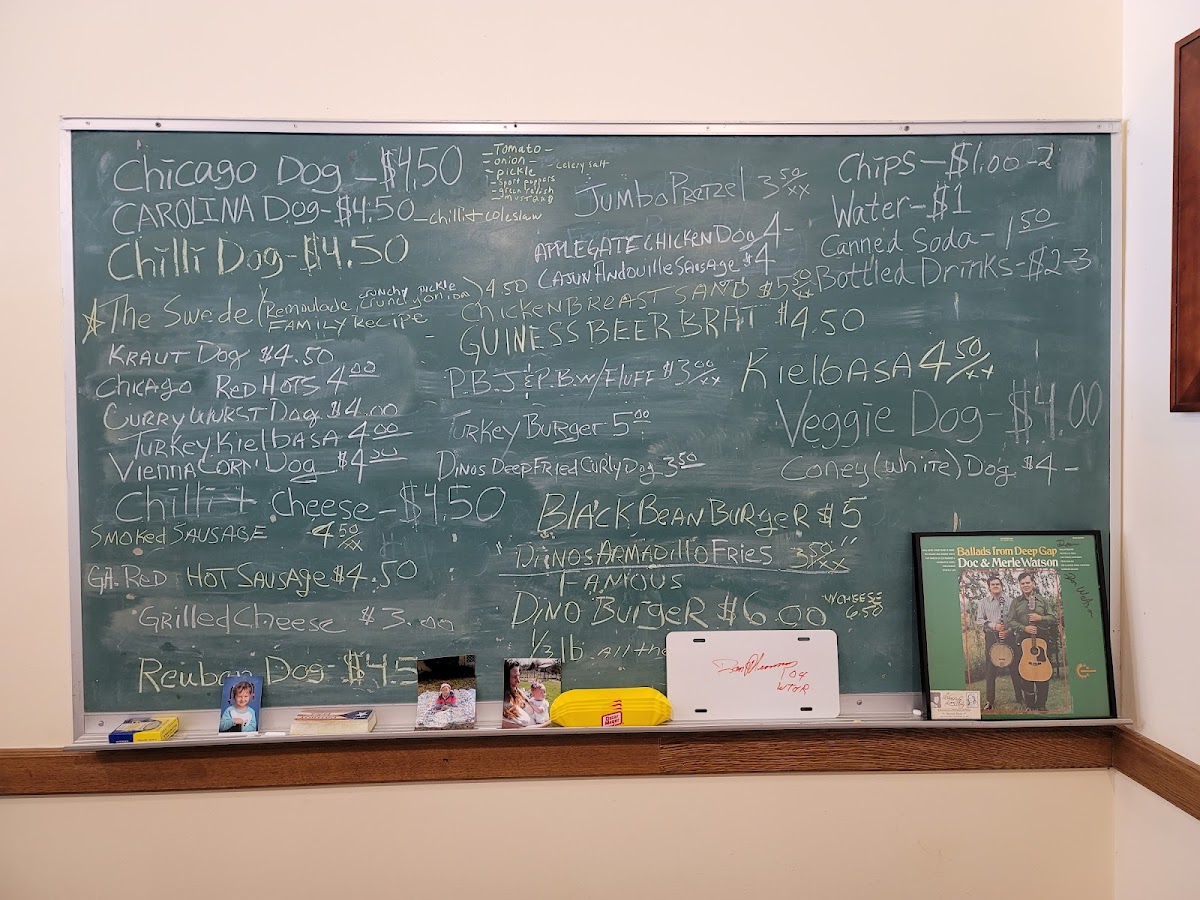 Chicago Dog - $4.50
- Tomato -
- onion -
- pickle
- celery salt
- sport peppers
- green relish
- mustard
CAROLINA Dog - $4.50 - chilli + coleslaw
Chilli Dog - $4.50
The Swede (Remoulade, crunchy pickle
crunchy onion
FAMILY RECIPE
) 4.50
KRAUT DOG $4.50
CHICAGO RED HOTS 4.00
CURRYWURST DOG $4.00
TURKEY KIELBASA 4.00
VIENNA CORN DOG $4.50
Chilli + Cheese - $4.50
SMOKED SAUSAGE 4.50/xx
GA. RED HOT SAUSAGE $4.50
GRILLED CHEESE $3.00
Reuban Dog - $4.5
Jumbo Pretzel 3.50/xx
APPLEGATE CHICKEN DOG 4-
CAJUN ANDOUILLE SAUSAGE $4
CHICKEN BREAST SAND $5.50/xx
GUINESS BEER BRAT $4.50
P.B.J & P.B. W/FLUFF $3.00/xx
Turkey Burger 5.00
DINOS DEEP FRIED CURLY DOG 3.50
BLACK BEAN BURGER $5
"DINOS ARMADILLO FRIES 3.50/xx"
FAMOUS
DINO BURGER $6.00 W/CHEESE
6.50
1/3 lb. All the
Chips - $1.00 - 2
Water - $1
Canned Soda - 1.50
Bottled Drinks - $2-3
KielbASA 4.50/xx
Veggie Dog - $4.00
Coney (white) Dog $4-
Oscar Mayer
'04
WTOR
Ballads from Deep Gap
Doc & Merle Watson